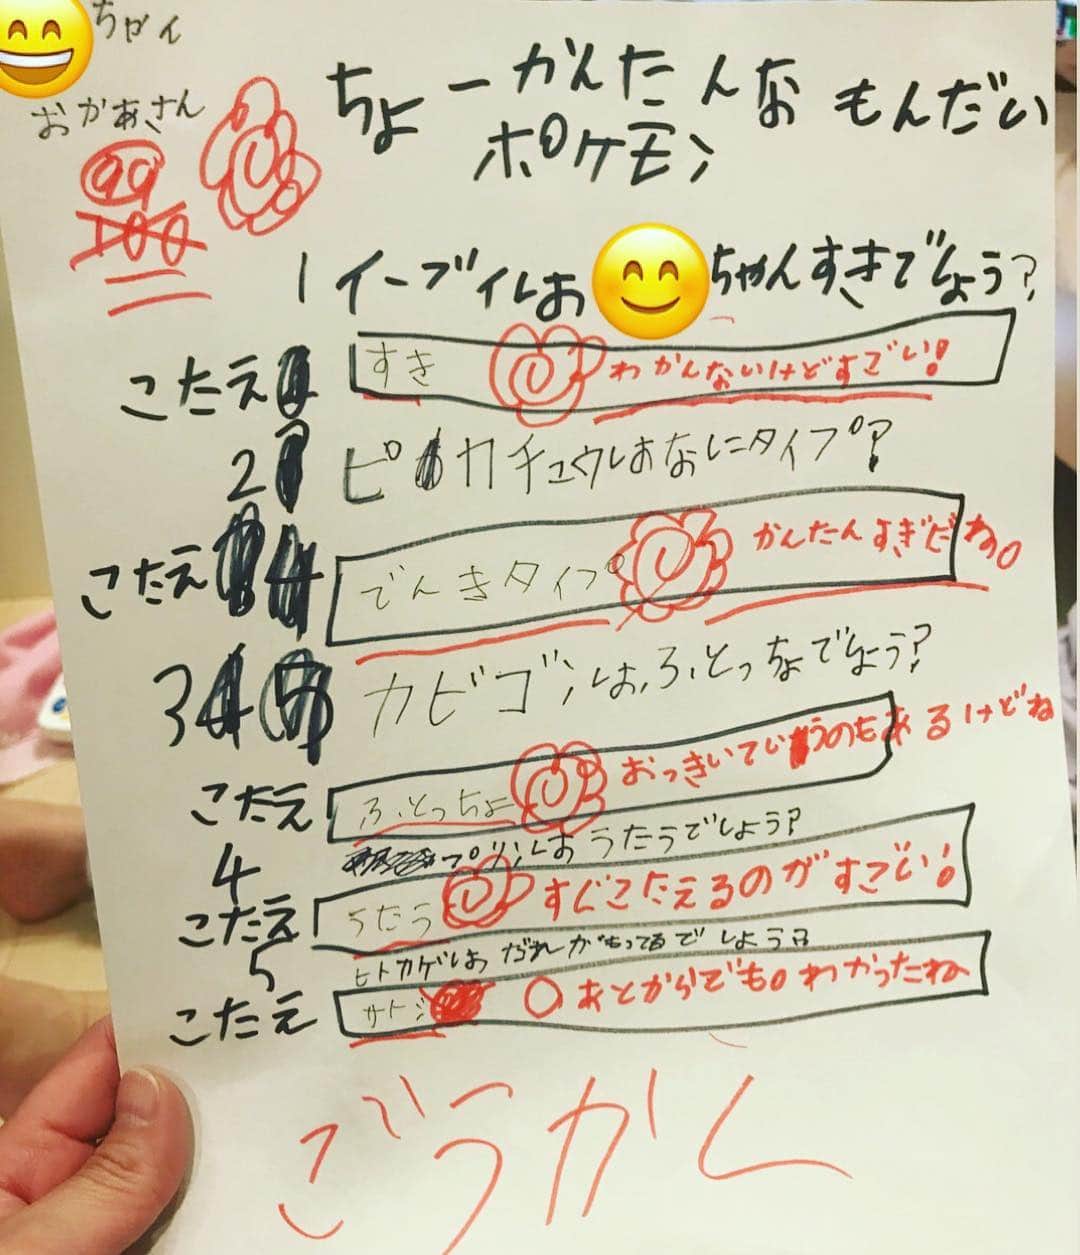 ちゃん
おかあさん
99
100
ちょーかんたんな もんだい
ポケモン
1 イーブイはちゃんすきでしょう?
こたえ すき わかんないけどすごい!
2 ピカチュウはなにタイプ?
こたえ でんきタイプ かんたんすぎだね。
3 カビゴンは、ふとっちょでしょう?
こたえ ふとっちょ おっきいていうのもあるけどね
4 プリンは うたうでしょう?
こたえ うたう すぐこたえるのがすごい!
5 ヒトカゲは だれがもってるでしょうか
こたえ サトシ あとからでも。わかったね
ごうかく